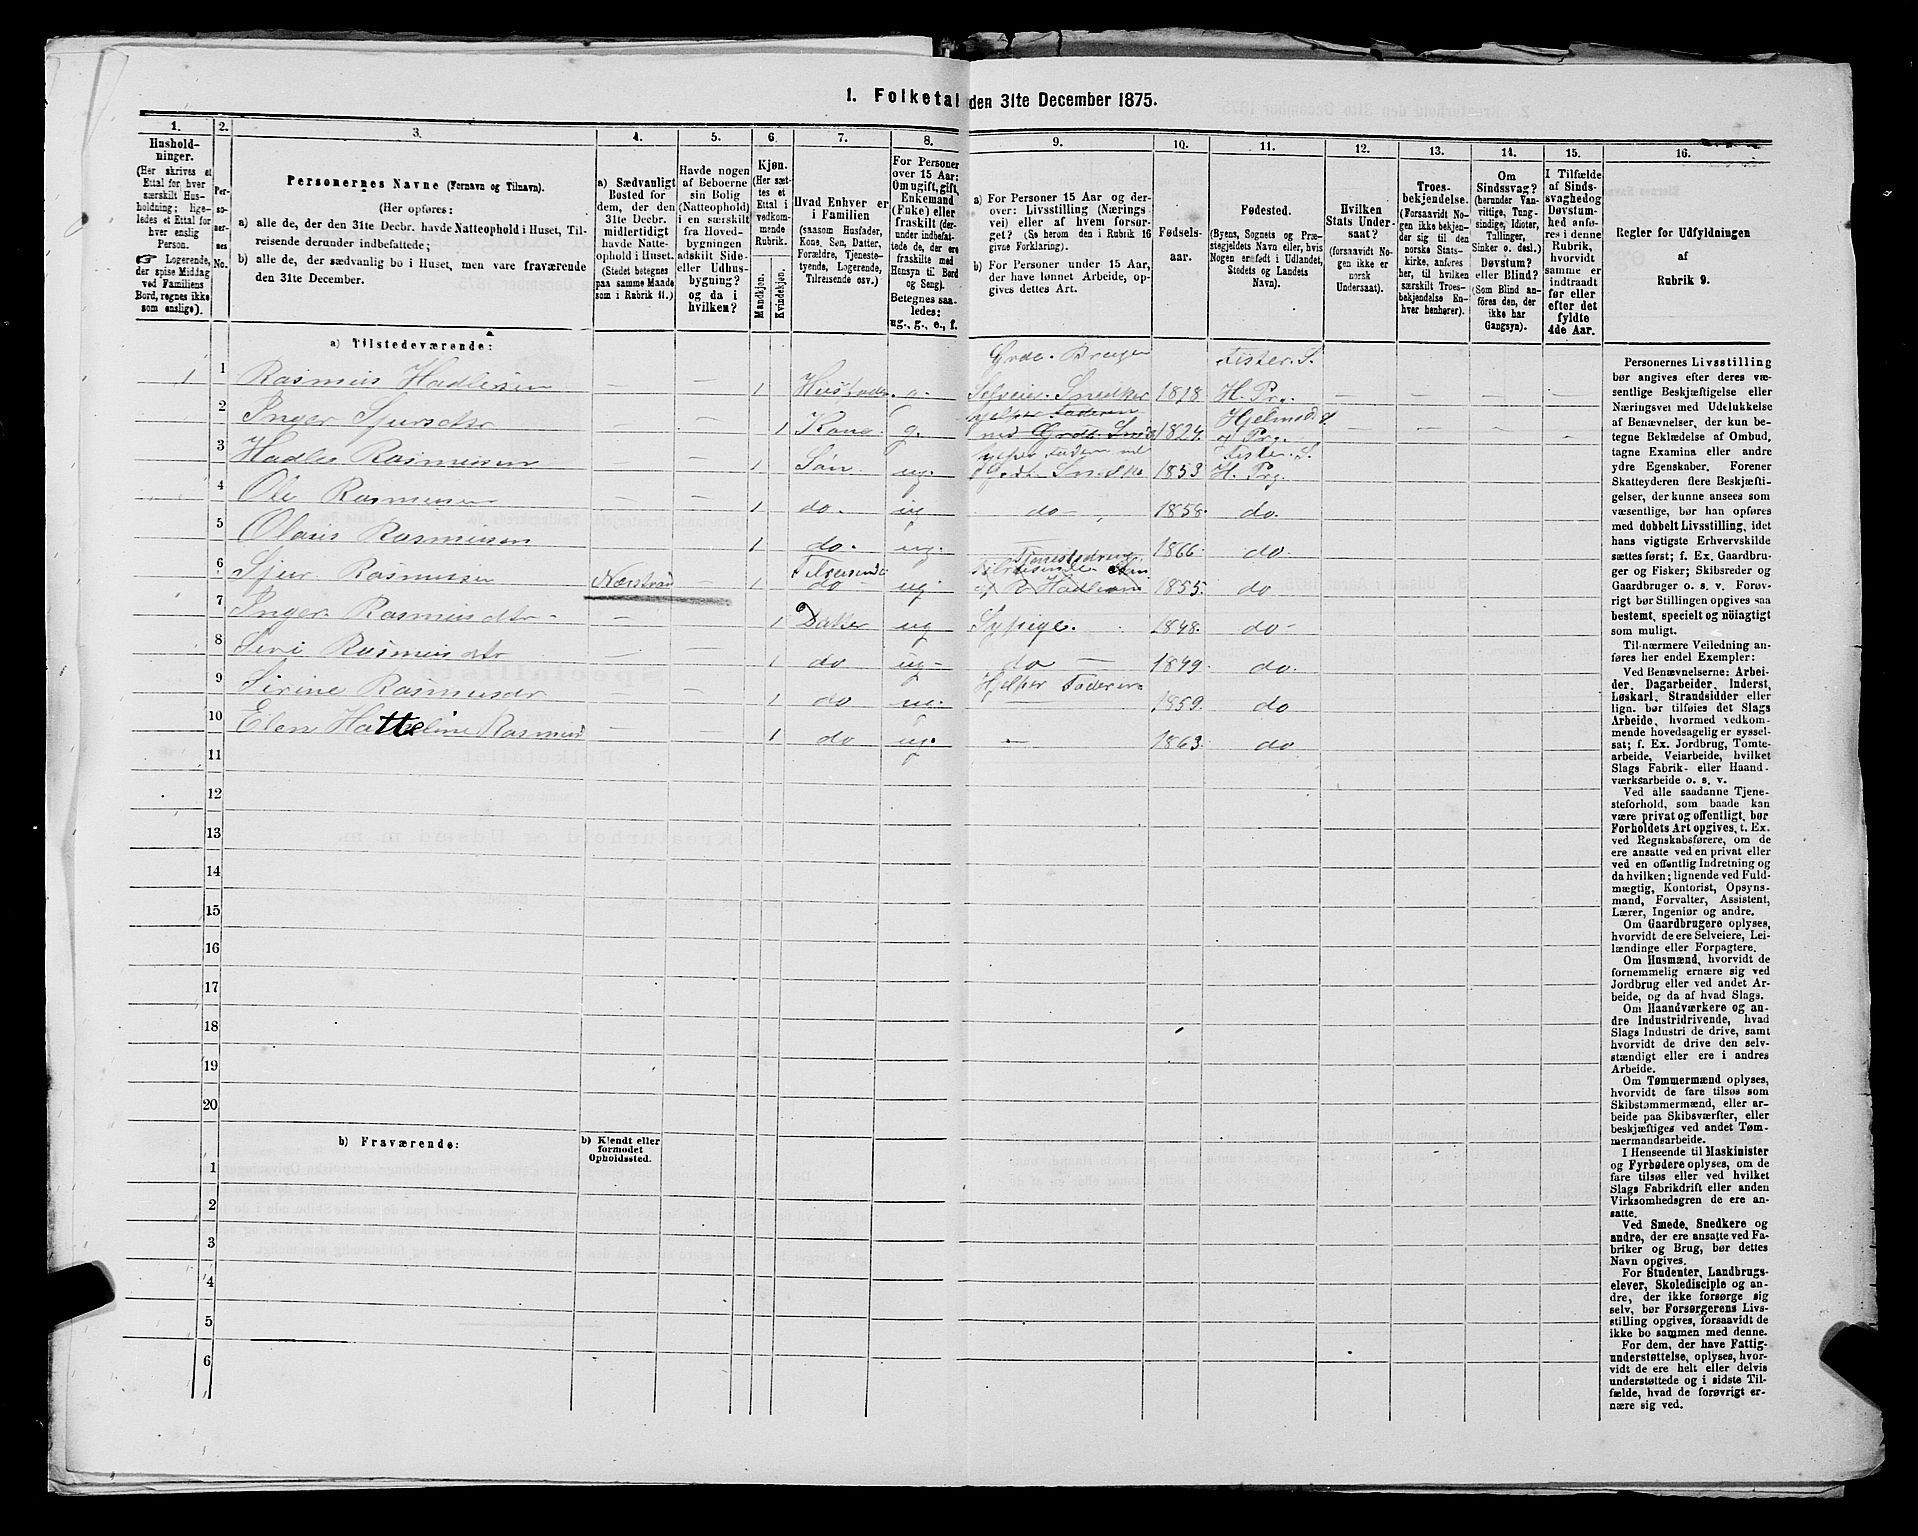 1. Folketal den 31te December 1875.
1.
Hushold-
ninger.
(Her skrives et
Ettal for hver
særskilt Hus-
holdning; lige-
ledes et Ettal for
hver enslig
Person.
☞ Logerende,
der spise Middag
ved Familiens
Bord, regnes ikke
som enslige).
2.
Per-
so-
ner-
nes
No.
3.
Personernes Navne (Fornavn og Tilnavn).
(Her opføres:
a) alle de, der den 31te Decbr. havde Natteophold i Huset, Til-
reisende derunder indbefattede;
b) alle de, der sædvanlig bo i Huset, men vare fraværende
den 31te December.
4.
a) Sædvanligt
Bosted for
dem, der den
31te Decbr.
midlertidigt
havde Natte-
ophold i Huset.
(Stedet betegnes
paa samme Maade
som i Rubrik 11.)
5.
Havde nogen
af Beboerne
sin Bolig
(Natteophold)
i en særskilt
fra Hoved-
bygningen
adskilt Side-
eller Udhus-
bygning?
og da i
hvilken?
6.
Kjøn.
(Her sæt-
tes et
Ettal i
vedkom-
mende
Rubrik.)
Mandkjøn.
Kvindekjøn.
7.
Hvad Enhver er
i Familien
(saasom Husfader,
Kone, Søn, Datter,
Forældre, Tjeneste-
tyende, Logerende,
Tilreisende osv.)
8.
For Personer
over 15 Aar:
Om ugift, gift,
Enkemand
(Enke) eller
fraskilt (der-
under indbefat-
tede de, der ere
fraskilte med
Hensyn til Bord
og Seng).
Betegnes saa-
ledes:
ug., g., e., f.
9.
a) For Personer 15 Aar og der-
over: Livsstilling (Nærings-
vei) eller af hvem forsør-
get? (Se herom den i Rubrik 16
givne Forklaring).
b) For Personer under 15 Aar,
der have lønnet Arbeide, op-
gives dettes Art.
10.
Fødsels-
aar.
11.
Fødested.
(Byens, Sognets og Præ-
stegjeldets Navn eller, hvis
Nogen er født i Udlandet,
Stedets og Landets
Navn).
12.
Hvilken
Stats Under-
saat?
(forsaavidt No-
gen ikke er
norsk
Undersaat).
13.
Troes-
bekjendelse.
(Forsaavidt No-
gen ikke beken-
der sig til den
norske Stats-
kirke, anføres
her, til hvilken
særskilt Troes-
bekjendelse En-
hver henhører).
14.
Om
Sindssvag?
(herunder Van-
vittige, Tung-
sindige, Idioter,
Tullinger,
Sinker o. desl.)
Døvstum?
eller Blind?
(Som Blind an-
føres den, der
ikke har
Gangsyn).
15.
I Tilfælde
af Sinds-
svaghed og
Døvstum-
hed anfø-
res i denne
Rubrik,
hvorvidt
samme er
indtraadt
før eller
efter det
fyldte
4de Aar.
16.
Regler for Udfyldningen
af
Rubrik 9.
a) Tilstedeværende:
Grdr. Bruger Fister. S.
1 1 Rasmus Hadlesen — — 1 Husfader g. Selveier Snedker 1818 H. Prg. — — — —
2 Inger Sjursdtr — 1 Kone g. 1824 Hjelmd. S. og Prg. — — — —
3 Hadle Rasmussen — — 1 Søn ug. 1853 Fister. S. H. Prg.
4 Ole Rasmussen — — 1 do. ug do 1858 do.
5 Olaus Rasmussen — — 1 do. ug. 1866 do.
6 Sjur Rasmussen Nærstrand — 1 Tilreisende do ug 1855 do
7 Inger Rasmusdtr — — 1 Datter ug Sypige 1848 do
8 Siri Rasmusdtr — — 1 do ug do 1849 do.
9 Sirine Rasmusdtr — — 1 do ug. Hjelper Faderen 1859 do
10 Elen Hatteline Rasmus — — 1 do ug. — 1863 do
11
12
13
14
15
16
17
18
19
20
b) Fraværende:
b) Kjendt eller
formodet
Opholdssted.
1
2
3
4
5
6
Personernes Livsstilling
bør angives efter deres væ-
sentlige Beskjæftigelse eller
Næringsvei med Udelukkelse
af Benævnelser, der kun be-
tegne Beklædelse af Ombud,
tagne Examina eller andre
ydre Egenskaber. Forener
Skatteyderen flere Beskjæfti-
gelser, der kunne ansees som
væsentlige, bør han opføres
med dobbelt Livsstilling, idet
hans vigtigste Erhvervskilde
sættes først; f. Ex. Gaardbru-
ger og Fisker; Skibsreder og
Gaardbruger o. s. v. Forøv-
rigt bør Stillingen opgives saa
bestemt, specielt og nöiagtigt
som muligt.
Til nærmere Veiledning an-
føres her endel Exempler:
Ved Benævnelserne: Arbei-
der, Dagarbeider, Inderst,
Løskarl, Strandsidder eller
lign. bør tilføies det Slags
Arbeide, hvormed vedkom-
mende hovedsagelig er syssel-
sat; f. Ex. Jordbrug, Tomte-
arbeide, Veiarbeide, hvilket
Slags Fabrik- eller Haand-
værksarbeide o. s. v.
Ved alle saadanne Tjene-
steforhold, som baade kan
være privat og offentligt, bør
Forholdets Art opgives, t. Ex.
ved Regnskabsførere, om de
ere ansatte ved en privat eller
ved en offentlig Indretning og
da hvilken; lignende ved Fuld-
mægtig, Kontorist, Opsyns-
mand, Forvalter, Assistent,
Lærer, Ingeniør og andre.
Om Gaardbrugere oplyses,
hvorvidt de ere Selveiere, Lei-
lændinge eller Forpagtere.
Om Husmænd, hvorvidt de
fornemmelig ernære sig ved
Jordbrug eller ved andet Ar-
beide, og da af hvad Slags.
Om Haandværkere og an-
dre Industridrivende, hvad
Slags Industri de drive, samt
hvorvidt de drive den selv-
stændigt eller ere i andres
Arbeide.
Om Tømmermænd oplyses,
hvorvidt de fare tilsøs som
Skibstømmermænd, eller ar-
beide paa Skibsværfter, eller
beskjæftiges ved andet Tøm-
mermandsarbeide.
I Henseende til Maskinister
og Fyrbødere oplyses, om de
fare tilsøs eller ved hvilket
Slags Fabrikdrift eller anden
Virksomhedsgren de ere an-
satte.
Ved Smede, Snedkere og
andre, der ere ansatte ved Fa-
briker og Brug, bør dettes
Navn opgives.
For Studenter, Landbrugs-
elever, Skoledisciple og an-
dre, der ikke forsørge sig
selv, bør Forsørgerens Livs-
stilling opgives, forsaavidt de
ikke bo sammen med denne.
For dem, der have Fattig-
understøttelse, oplyses, hvor-
vidt de ere helt eller delvis
understøttede og i sidste Til-
fælde, hvad de forøvrigt er-
nære sig ved.